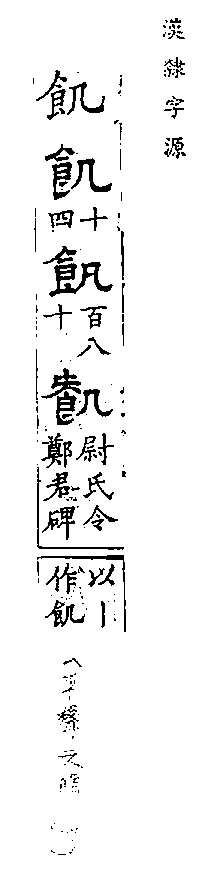 漢隸字源
飢
飢
十
四
飢
百八
十
尉氏令
鄭君碑
以丨
作飢